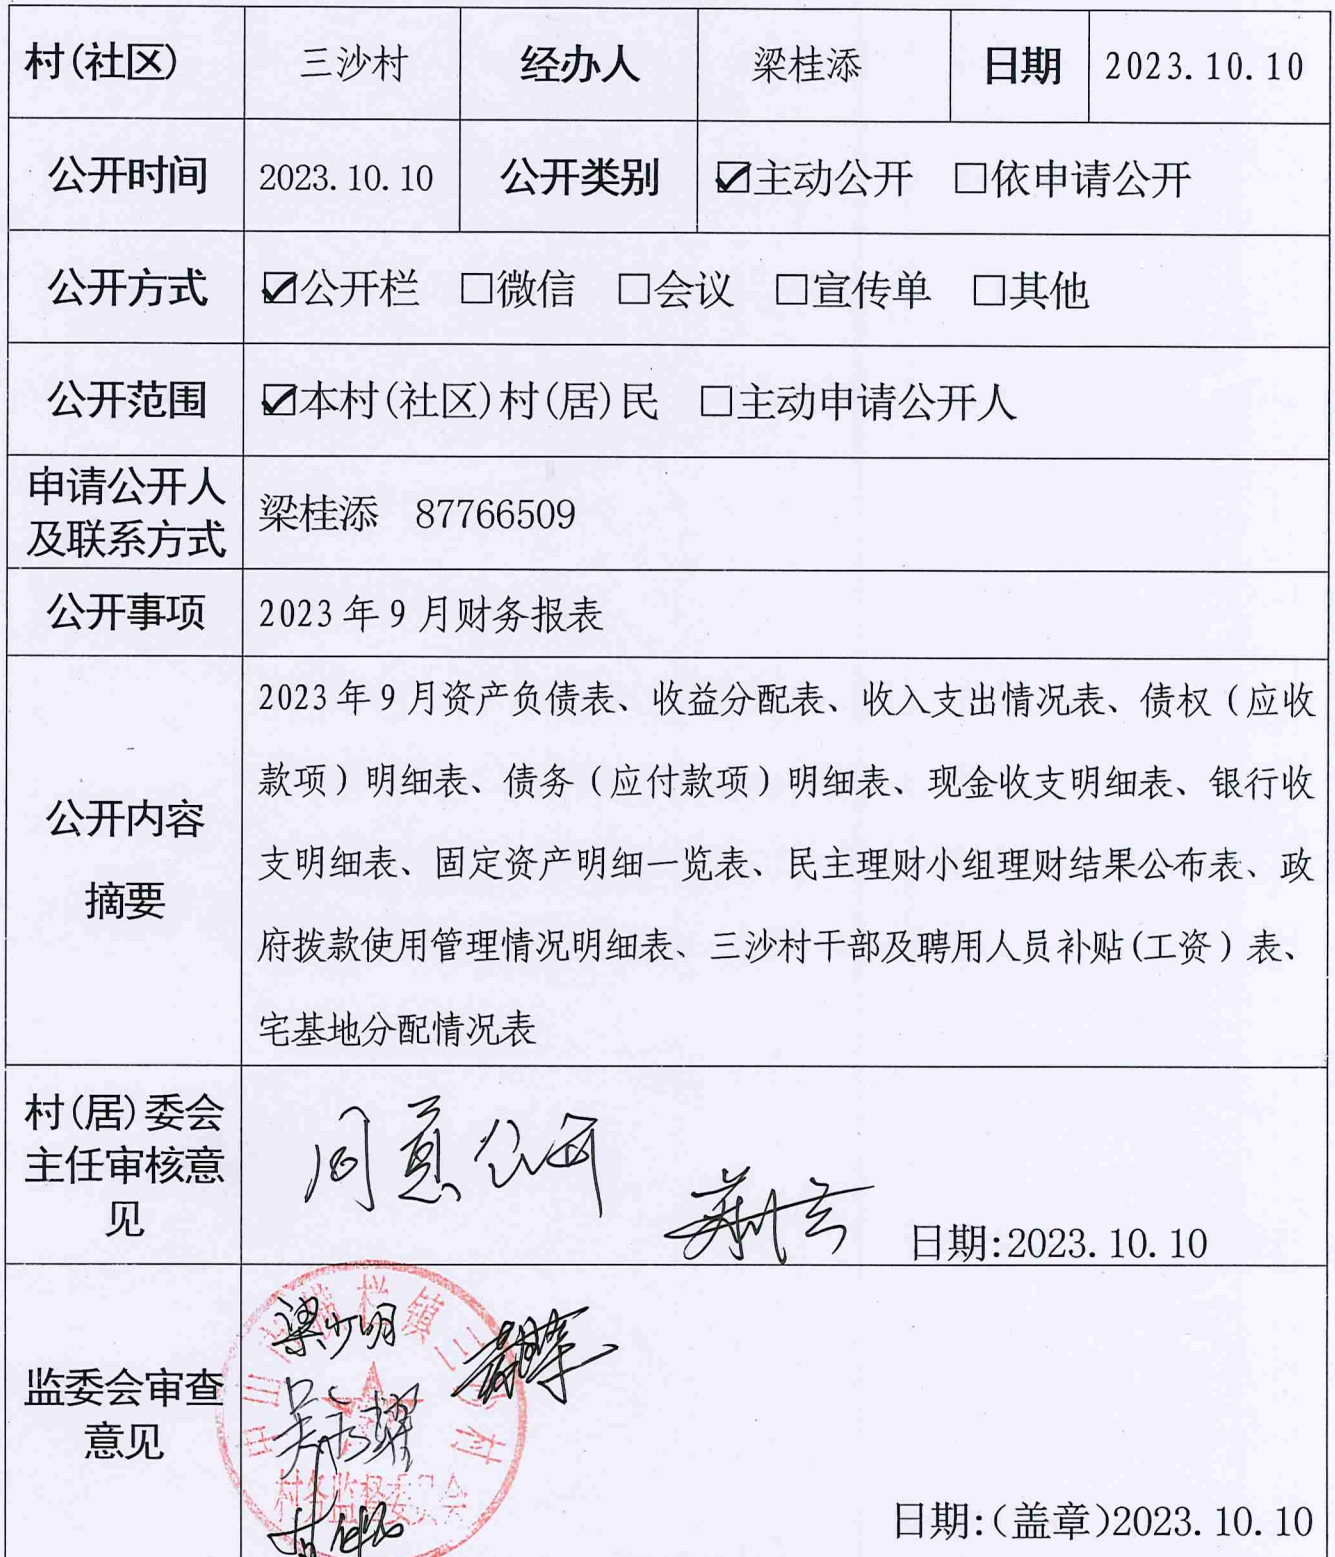 村(社区) 三沙村 经办人 梁桂添 日期 2023.10.10
公开时间 2023.10.10 公开类别 ☑主动公开 □依申请公开
公开方式 ☑公开栏 □微信 □会议 □宣传单 □其他
公开范围 ☑本村(社区)村(居)民 □主动申请公开人
申请公开人
及联系方式
梁桂添 87766509
公开事项 2023年9月财务报表
公开内容
摘要
2023年9月资产负债表、收益分配表、收入支出情况表、债权（应收
款项）明细表、债务（应付款项）明细表、现金收支明细表、银行收
支明细表、固定资产明细一览表、民主理财小组理财结果公布表、政
府拨款使用管理情况明细表、三沙村干部及聘用人员补贴(工资）表、
宅基地分配情况表
村(居)委会
主任审核意
见
同意公开
日期:2023.10.10
监委会审查
意见
中山市横栏镇三沙村
村务监督委员会
梁少明
日期:(盖章)2023.10.10